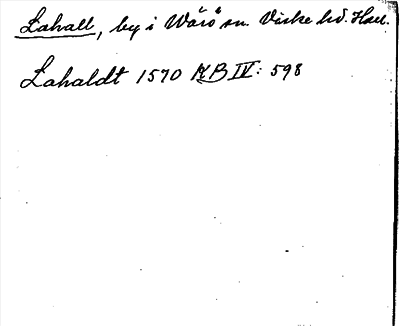 Lahall, by i Wärö sn. Viske hd. Hall.
Lahaldt 1570 KB IV: 598